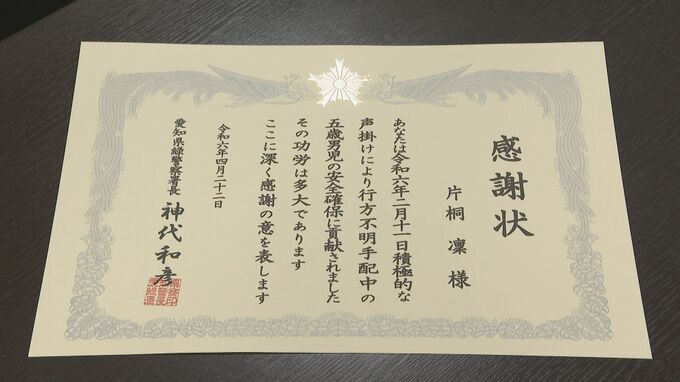 感謝状
片桐 凜 様
あなたは令和六年二月十一日積極的な
声掛けにより行方不明手配中の
五歳男児の安全確保に貢献されました
その功労は多大であります
ここに深く感謝の意を表します
令和六年四月二十二日
愛知県緑警察署長 神代和彦